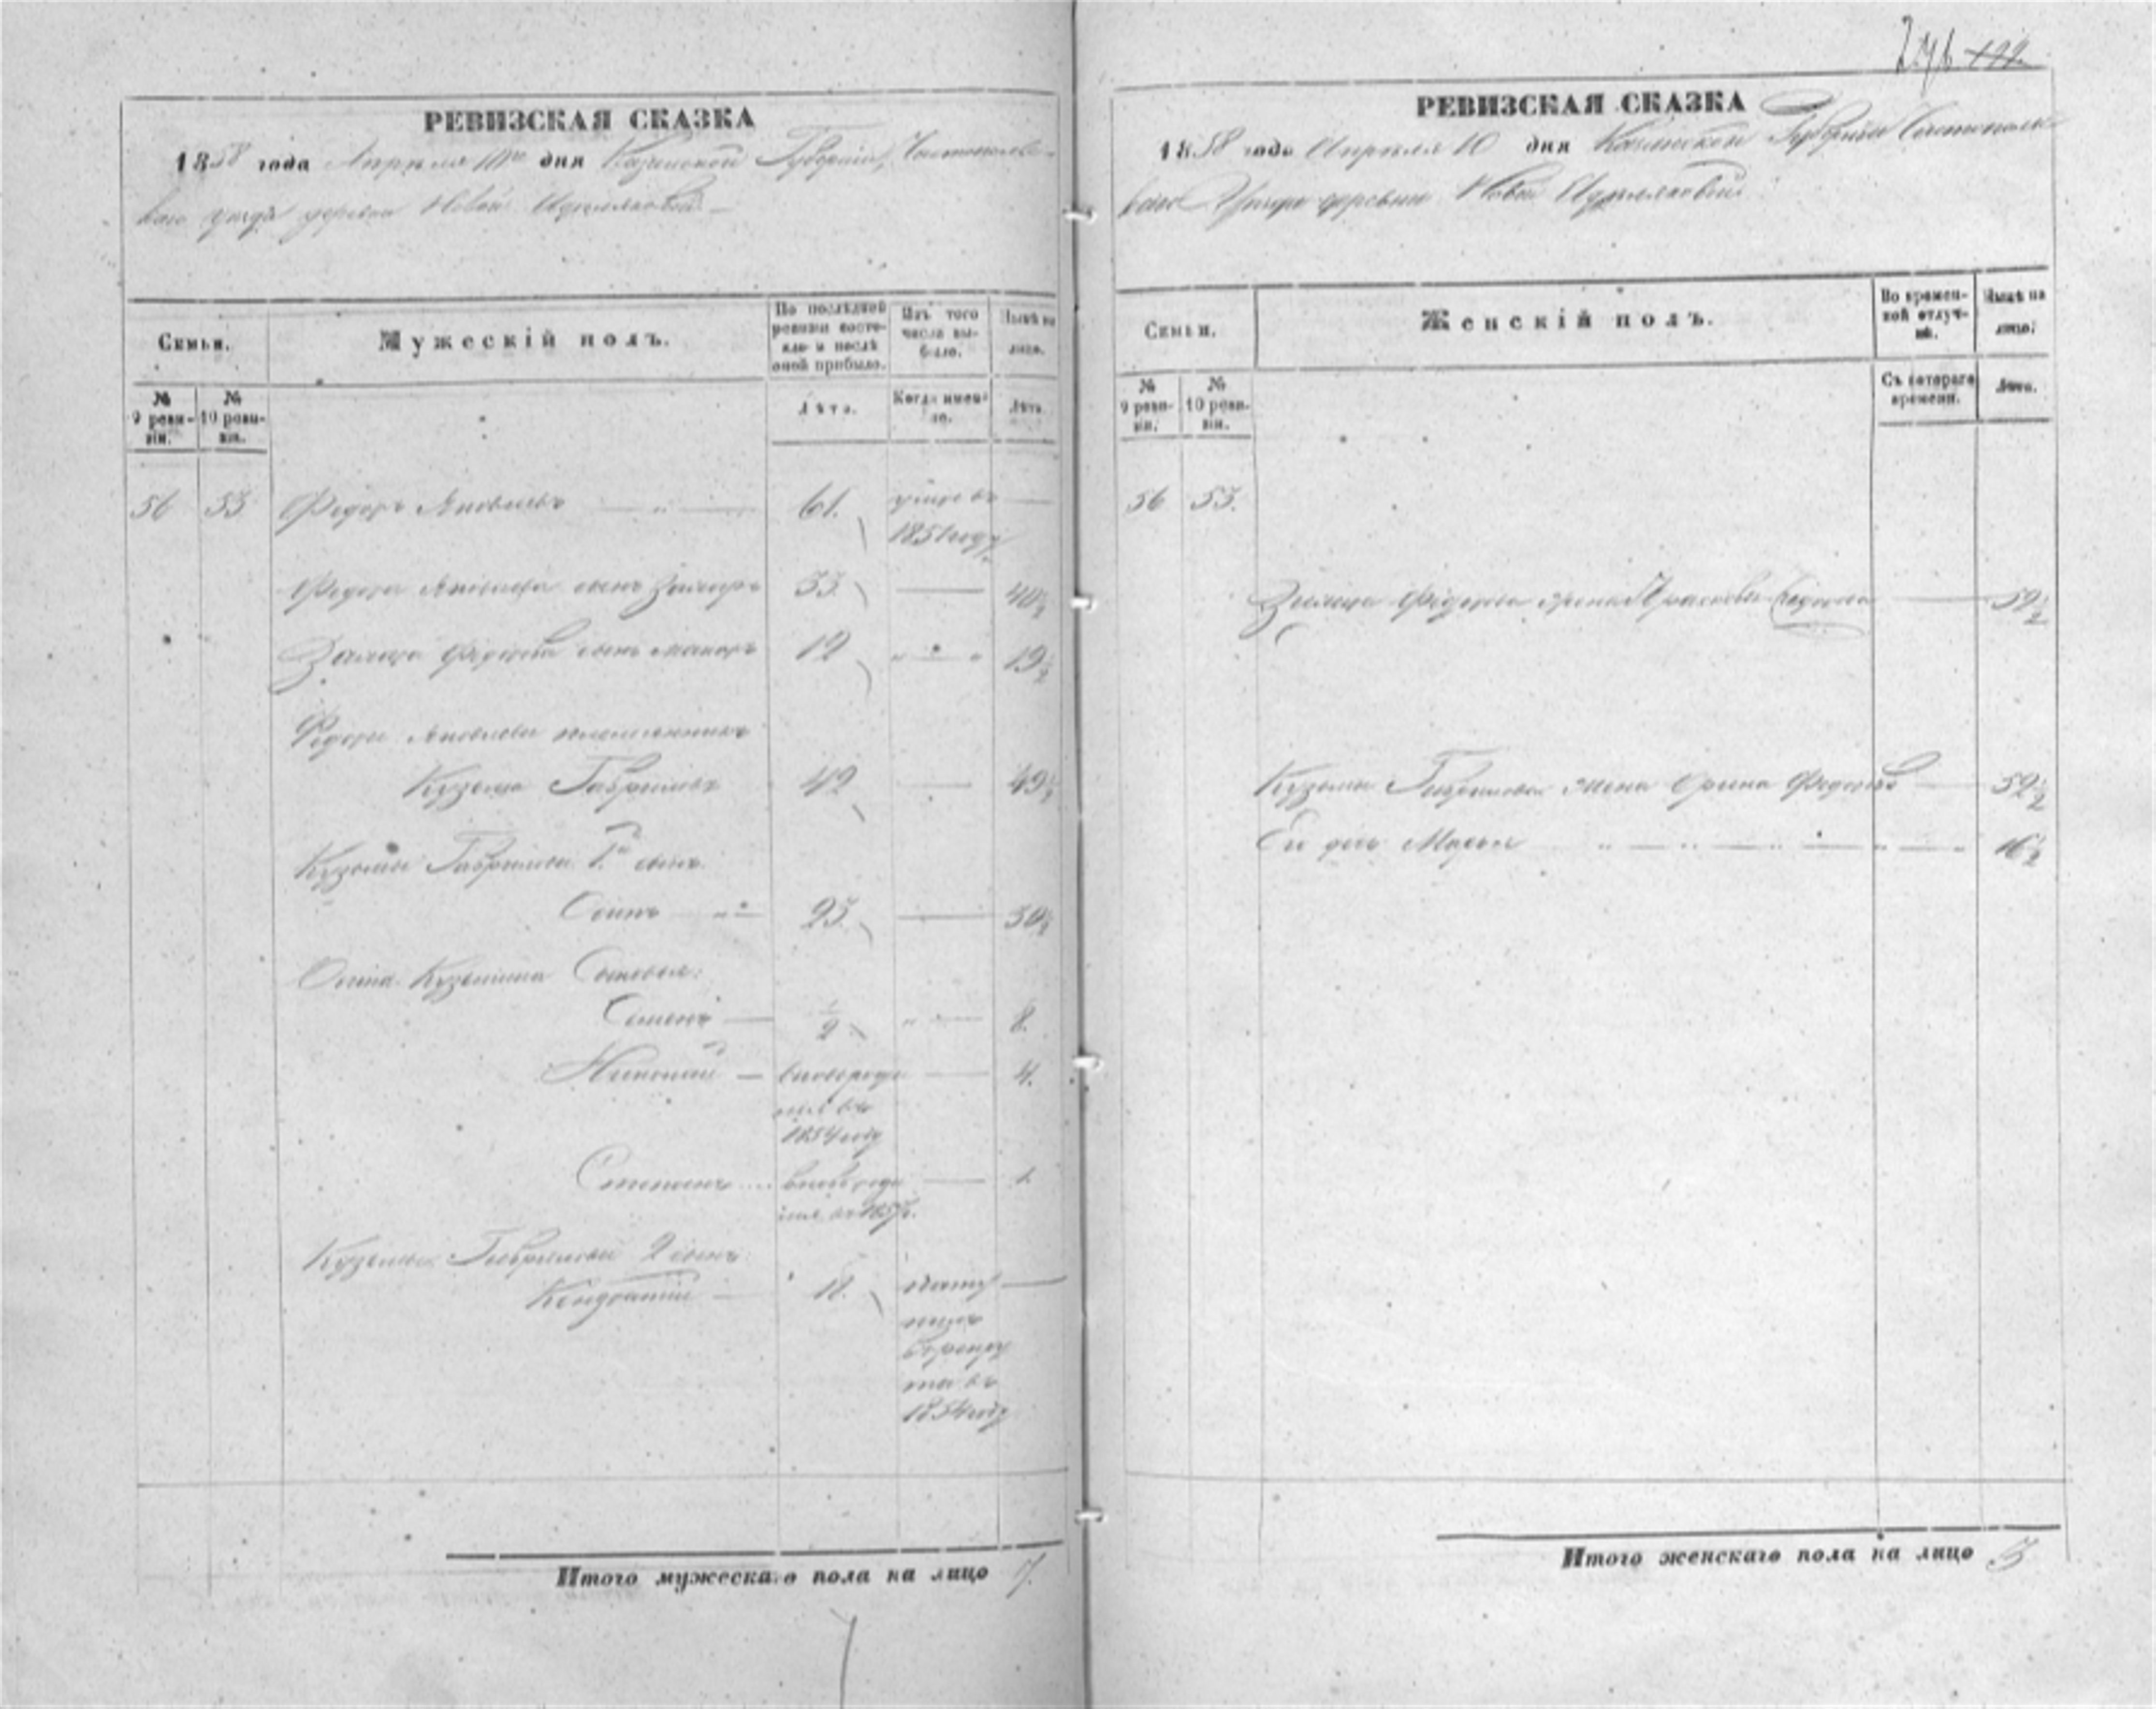 РЕВИЗСКАЯ СКАЗКА
1858 года Апреля 10го дня Казанской Губернии, Чистопольс-
каго уезда деревни Новой
Семьи.
Мужескій полъ.
По послѣдней ревизіи состояло и послѣ оной прибыло.
Изъ того числа выбыло.
Нынѣ на лицо.
№ 9 ревизіи.
№ 10 ревизіи.
Лѣта.
Когда именно.
Лѣта.
56 53 Федоръ Яковлевъ 61. умре въ
1851 году
Федора Яковлева сынъ Захаръ 33 40½
Захара Федорова сынъ Макаръ 12 19½
Федора Яковлева племянникъ
Кузьма Гавриловъ 42 49½
Кузьмы Гаврилова 1й сынъ
Осипъ 23 30½
Осипа Кузьмина Сыновья:
Семенъ ½ 8.
Николай вновь роди 4.
лся въ
1854 году
Степанъ вновь роди 1.
лся въ 1857г.
Кузьмы Гаврилова 2 сынъ
Кондратій 11.
въ рекру
ты въ
1854 году
Итого мужескаго пола на лицо 7.
276 122.
РЕВИЗСКАЯ СКАЗКА
1858 года Апреля 10 дня Казанской Губернии Чистопольс-
каго Уезда деревни Новой
Семьи.
Женскій полъ.
Во временной отлучкѣ.
Нынѣ на лицо.
№ 9 ревизіи.
№ 10 ревизіи.
Съ котораго времени.
Лѣта.
56 53.
Захара Федорова жена Прасковья 52½
Кузьмы Гаврилова жена Орина Федорова 52½
Ея дочь Марья 16½
Итого женскаго пола на лицо 3